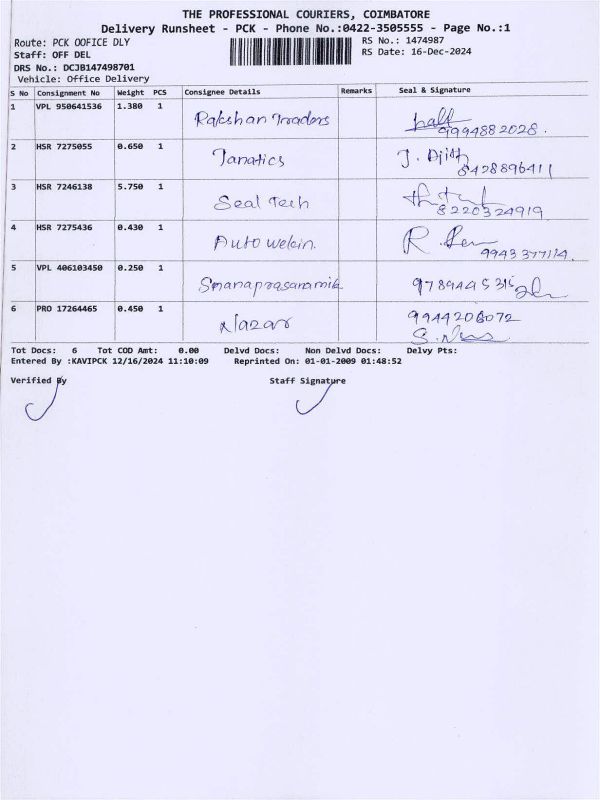 THE PROFESSIONAL COURIERS, COIMBATORE
Delivery Runsheet - PCK - Phone No.:0422-3505555 - Page No.:1
Route: PCK OOFICE DLY RS No.: 1474987
Staff: OFF DEL RS Date: 16-Dec-2024
DRS No.: DCJB147498701
Vehicle: Office Delivery
S No Consignment No Weight PCS Consignee Details Remarks Seal & Signature
1 VPL 950641536 1.380 1 Rakshan Traders 9994882028.
2 HSR 7275055 0.650 1 Tanatics J. Ajith 8428896411
3 HSR 7246138 5.750 1 Seal Tech 8220324919
4 HSR 7275436 0.430 1 Auto welcin. 9943377114.
5 VPL 406103450 0.250 1 9789445315
6 PRO 17264465 0.450 1 Nazar 9944206072
Tot Docs: 6 Tot COD Amt: 0.00 Delvd Docs: Non Delvd Docs: Delvy Pts:
Entered By :KAVIPCK 12/16/2024 11:10:09 Reprinted On: 01-01-2009 01:48:52
Verified By Staff Signature